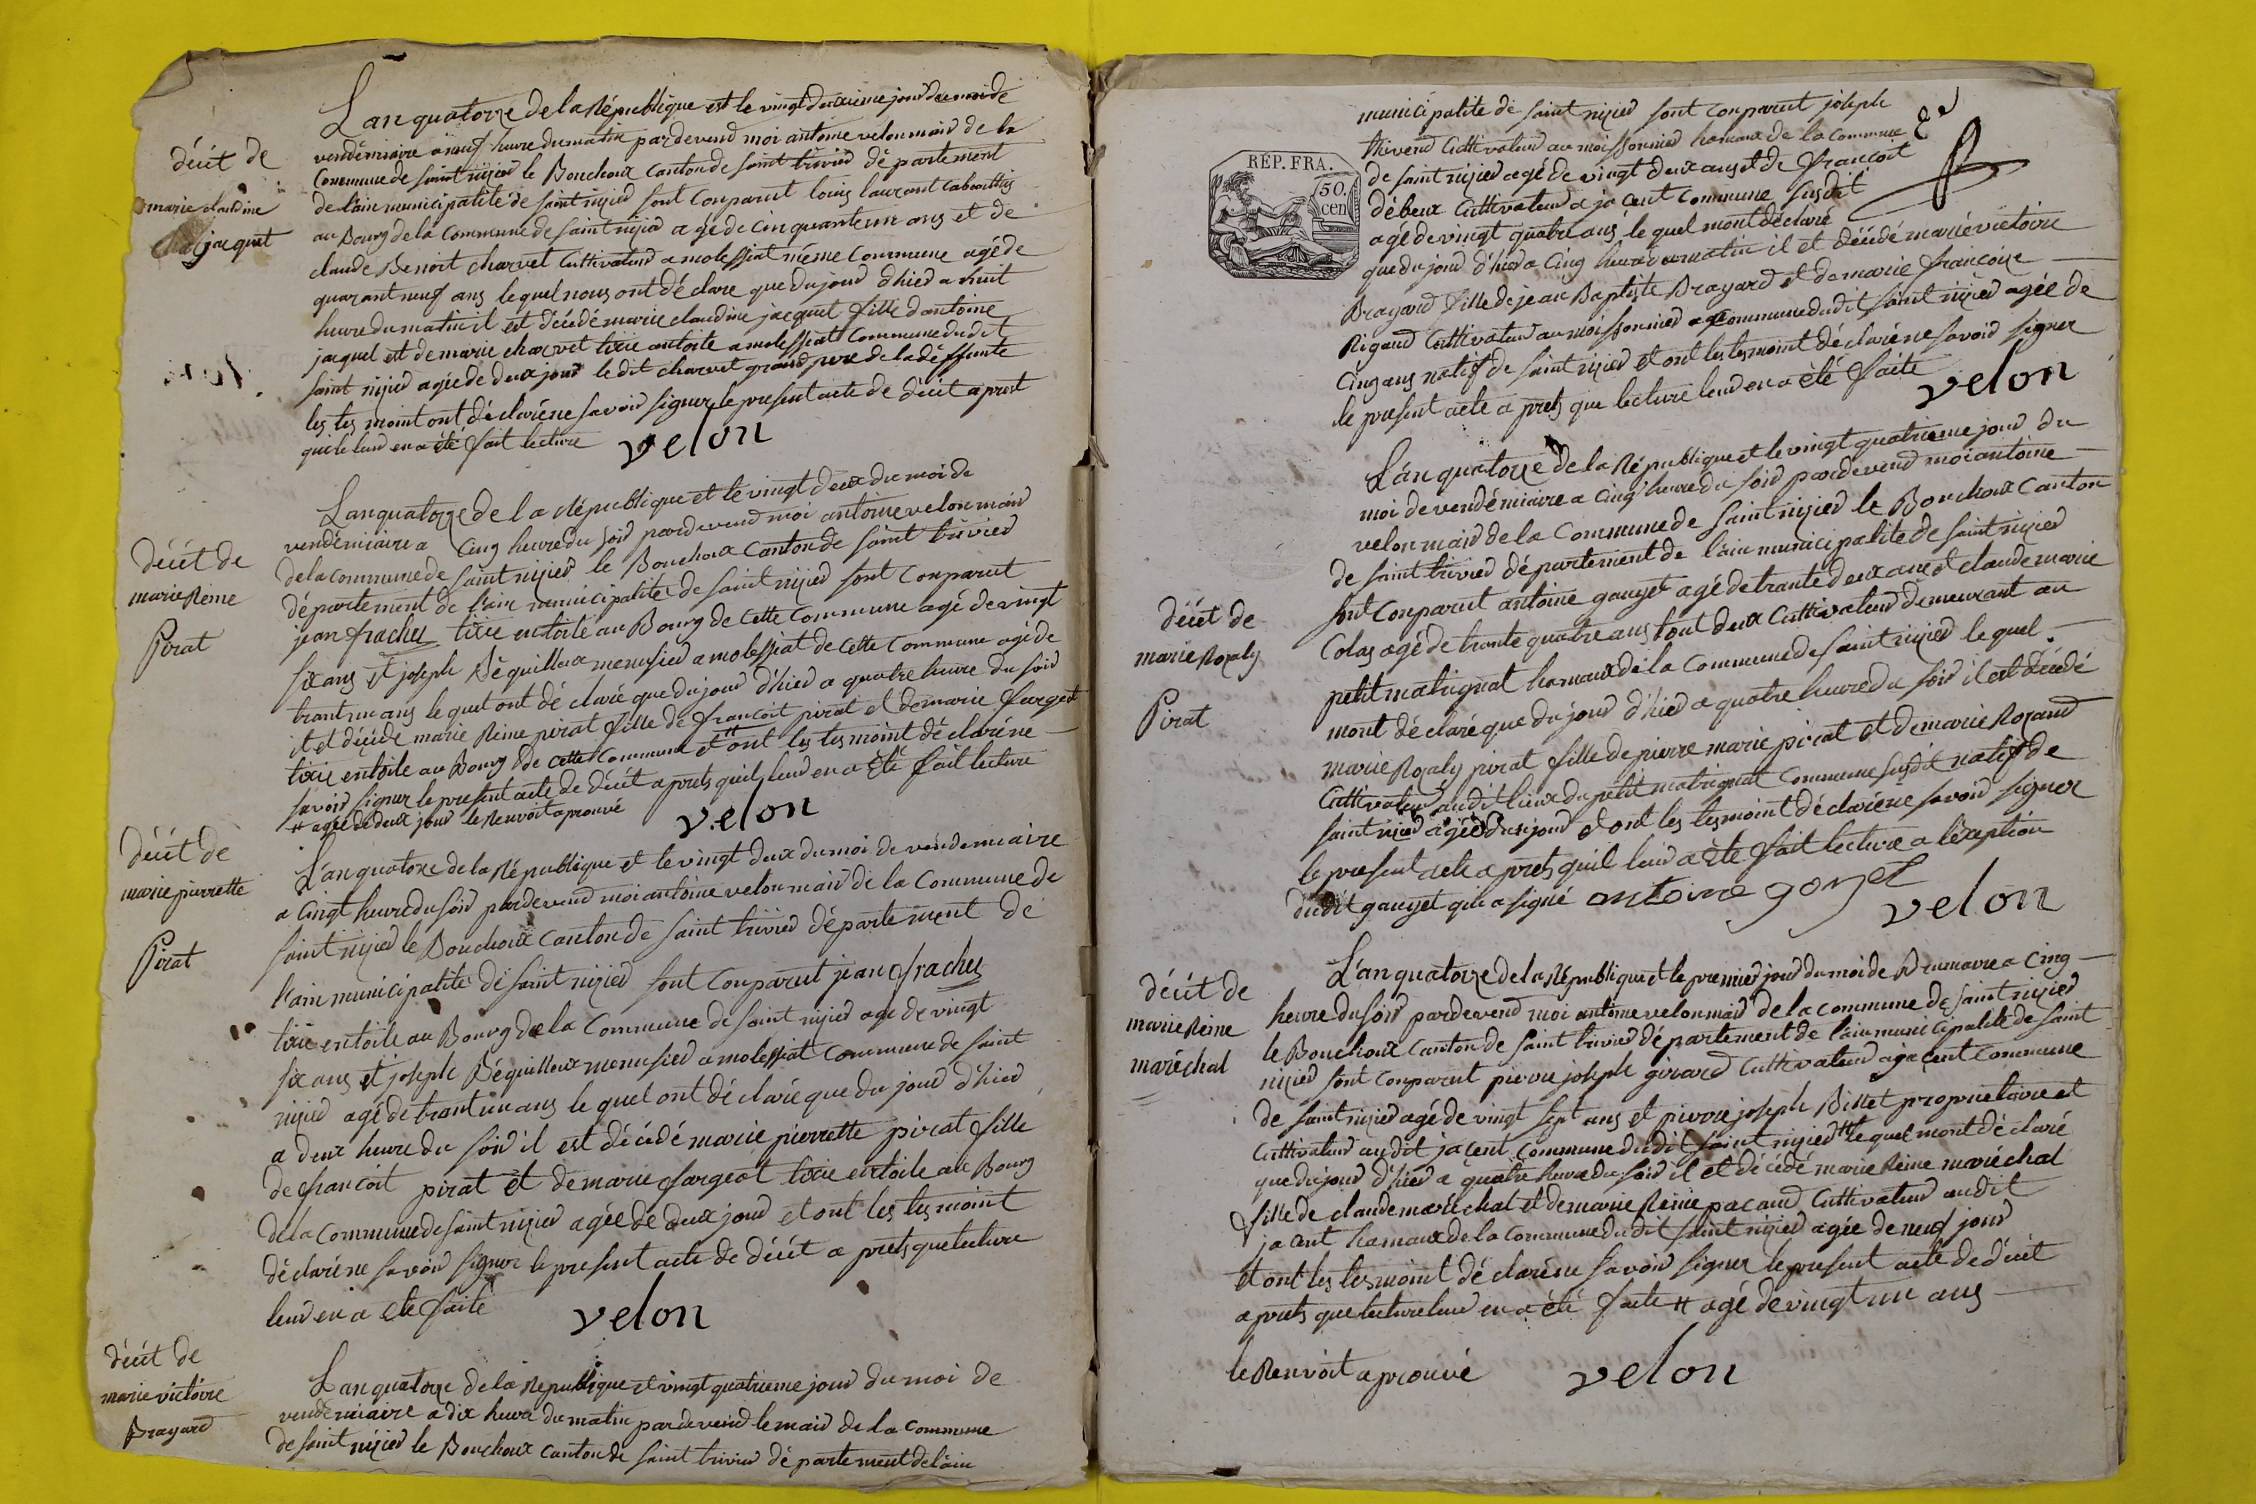 Lan quatorze de la République est le vingt deuxieme jour du moi de
vendémiaire a neuf heure du matin pardevend moi antoine velon maid de la
décét de
Commune de saint nizied le Bouchoux Canton de saint trivied département
marie claudine
jacquet
de l'ain municipalité de saint nizied sont Conparut louis laurant
au Bourg de la Commune de saint nizied agé de cinquante un ans et de
claude Benoit charvet Cultivateud a molessiat méme Commune agé de
quarant neuf ans lequel nous ont déclare que du jourd d'hied a huit
heure du matin il est décédé marie claudine jacquet fille d'antoine
jacquet est de marie charvet tixie antoile a molessiat Commune du dit
saint nizied agée de deux jourd le dit charvet grand pere de la déffunte
les tesmoint ont déclaré ne savoid signer le present acte de décét a prest
quil leud en a été fait lecture velon
Lan quatorze de la République et le vingt deux du moi de
vendémiaire a Cinq heure du soid pardevend moi antoine velon maid
décét de
marie Reine
Pirat
de la commune de saint nizied le Bouchoux Canton de saint trivied
département de l'ain municipalité de saint nizied sont Conparut
jean frachet tixie entoile au Bourg de Cette Commune agé de vingt
six ans et joseph Déguilloux menusied a molessiat de Cette Commune agé de
trant un ans le quel ont dé claré que du jourd d'hied a quatre heure du soid
il et décédé marie Reine pirat fille de francoit pirat et de marie fargeot
tixie entoile au Bourg de cette Commune et # ont les tesmoint dé claré ne
savoid signer le present acte de décét a prets quil leud en a été fait lecture
# agée de deux jourd le Renvoit a prouvé velon
décét de
marie pierrette
Pirat
L'an quatorze de la République et le vingt deux du moi de vendémiaire
a Cinqt heure du soid pardevend moi antoine velon maid de la Commune de
saint nizied le Bouchoux Canton de saint trivied département de
l'ain municipalité de saint nizied sont Conparut jean frachet
tixie entoile au Bourg de la Commune de saint nizied age de vingt
six ans et joseph Déguilloux menusied a molessiat Commune de saint
nizied agé de trant un ans le quel ont dé claré que du jourd d'hied
a deux heure du soid il est décédé marie pierrette pirat fille
de francoit pirat et de marie fargeot tixie entoile au Bourg
de la Commune de saint nizied agée de deux jourd et ont les tesmoint
dé claré ne savoid signer le present acte de décét a prets que lecture
leud en a ete faite velon
décét de
marie victoire
Brayard
Lan quatorze de la Republique et vingt quatrieme jourd du moi de
vendémiaire a dix heure du matin pardevend le maid de la Commune
de saint nizied le Bouchoux Canton de saint trivied département de lain
municipalité de saint nizied sont Conparut joseph
thivend Cultivateud au moissonnied hamaux de la Commune
RÉP. FRA.
50.
cen
de saint nizied agé de vingt deux ans et de francoit
débeux Cultivateud a jacent Commune susdit
agé de vingt quatre ans le quel mont déclaré
que du jourd d'hied a Cinq heure du matin il et décédé marie victoire
Brayard fille de jean Baptiste Brayard et de marie francoise
Rigaud Cultivateud au moissonnied Commune du dit saint nizied agée de
Cinq ans natif de saint nizied et ont les tesmoint déclaré ne savoid signer
le present acte a prets que lecture leud en a été faite velon
L'an quatorze de la République et le vingt quatrieme jourd du
moi de vendémiaire a Cinq heure du soid pardevend moi antoine
velon maid de la Commune de saint nizied le Bouchoux Canton
de saint trivied département de l'ain municipalité de saint nizied
décét de
marie Rozaly
Pirat
sont Conparut antoine gauzet agé de trante deux ans et claude marie
Colas agé de trante quatre ans tout deux Cultivateud demeurant au
petit matrignat hamaux de la Commune de saint nizied le quel
mont déclaré que du jourd d'hied a quatre heure du soid il est décédé
marie Rozaly pirat fille de pierre marie pirat et de marie Rozand
Cultivateud au dit lieux du petit matrignat Commune susdit natif de
saint nizied agée jourd et ont les tesmoint déclaré ne savoid signer
le present acte a prets quil leud a été fait lecture a l'exeption
du dit gauzet qui a signé antoine gouzet velon
décét de
marie Reine
maréchal
L'an quatorze de la République et le premier jourd du moi de Brumaire a Cinq
heure du soid pardevend moi antoine velon maid de la commune de saint nizied
le Bouchoux Canton de saint trivied département de l'ain municipalité de saint
nizied sont Conparut pierre joseph girard Cultivateud a jacent Commune
de saint nizied agé de vingt sept ans et pierre joseph Billet proprietaire et
Cultivateud au dit jacent Commune du dit saint nizied # le quel mont dé claré
que du jourd d'hied a quatre heure du soid il et décédé marie Reine maréchal
fille de claude maréchal et de marie Reine pacaud Cultivateud au dit
jacent hamaux de la Commune du dit saint nizied agée de neuf jourd
et ont les tesmoint dé claré ne savoid signer le present acte de décét
a prets que lecture leud en a été faite # agé de vingt un ans
le Renvoit a prouvé velon